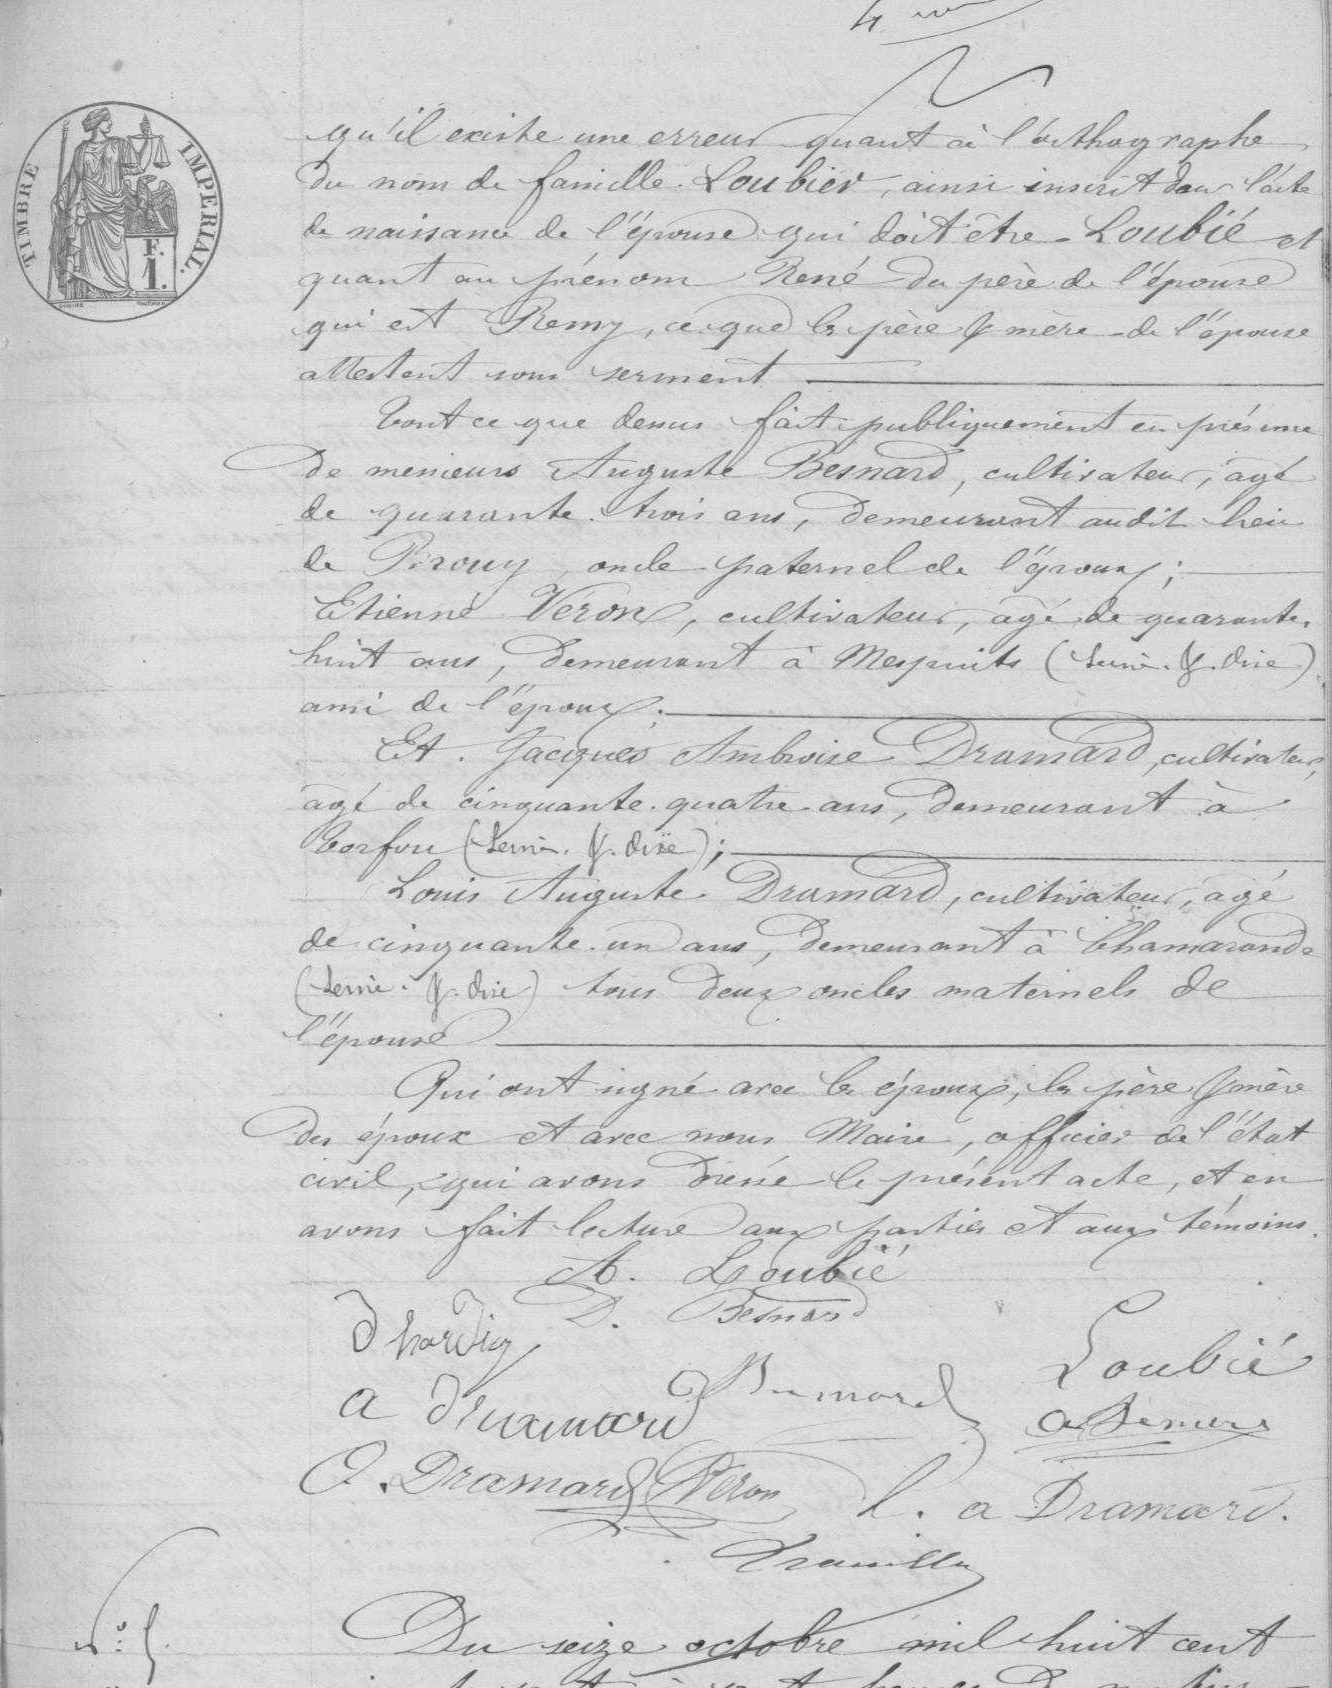 4
TIMBRE IMPERIAL.
F.
1.
qu'il existe une erreur quant à l'orthographe
du nom de famille Loubier, ainsi inscrit dans l'acte
de naissance de l'épouse qui doit être Loubié et
quant au prénom René du père de l'épouse
qui est Remy, ce que les père & mère de l'épouse
attestent sous serment
Tout ce que dessus fait publiquement en présence
de messieurs Auguste Besnard, cultivateur, âgé
de quarante trois ans, demeurant audit lieu
de Prouy, oncle paternel de l'époux;
Etienne Véron, cultivateur, âgé de quarante
huit ans, demeurant à Mespuits (Seine & Oise)
ami de l'époux;
Et Jacques Ambroise Dramard, cultivateur,
âgé de cinquante quatre ans, demeurant à
Torfou (Seine & Oise);
Louis Auguste Dramard, cultivateur, âgé
de cinquante un ans, demeurant à Chamarande
(Seine & Oise) tous deux oncles maternels de
l'épouse
Qui ont signé avec les époux, les père & mère
des époux et avec nous Maire, officier de l'état
civil, qui avons dressé le présent acte, et en
avons fait lecture aux parties et aux témoins.
A. Loubié
D. Besnard
D hardy
Loubié
a Dramard
O. Dramard Véron L. a Dramard.
N° 5.
Du seize octobre mil huit cent